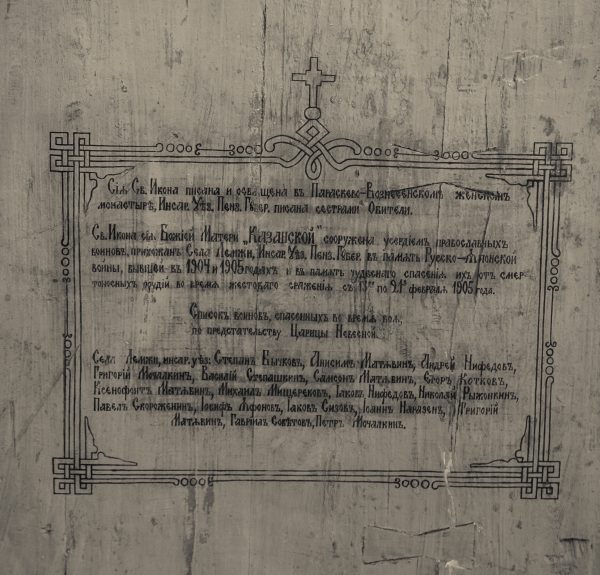 Сія Св. Икона писана и освящена въ Параскево-Вознесенскомъ женскомъ
монастырѣ, Инсар. Уѣз. Пенз. Губер. писана сестрами Обители.
Св. Икона сія Божіей Матери „Казанской" сооружена усердіемъ православныхъ
воиновъ, прихожанъ Села Лемжи, Инсар. Уѣз. Пенз. Губер. въ память Русско-Японской
войны, бывшей въ 1904 и 1905 годахъ и въ память чудеснаго спасенія ихъ отъ смер
тоносныхъ орудій во время жестокаго сраженія съ по февраля 1905 года.
Списокъ воиновъ, спасенныхъ во время
по предстательству Царицы Небесной.
Села Лемжи, инсар. уѣз: Степанъ Бычковъ, Анисимъ Матявинъ, Андрей Нифедовъ,
Григорій Мочалкинъ, Василій Степашкинъ, Самсонъ Матявинъ, Егоръ Котковъ,
Ксенофонтъ Матявинъ, Михаилъ Мищеряковъ, Іаковъ Нифедовъ, Николай Рыжонкинъ,
Павелъ Скороженинъ, Іосифъ Афоновъ, Іаковъ Сизовъ, Іоаннъ Григорій
Матявинъ, Гавріилъ Совѣтовъ, Петръ Мочалкинъ.